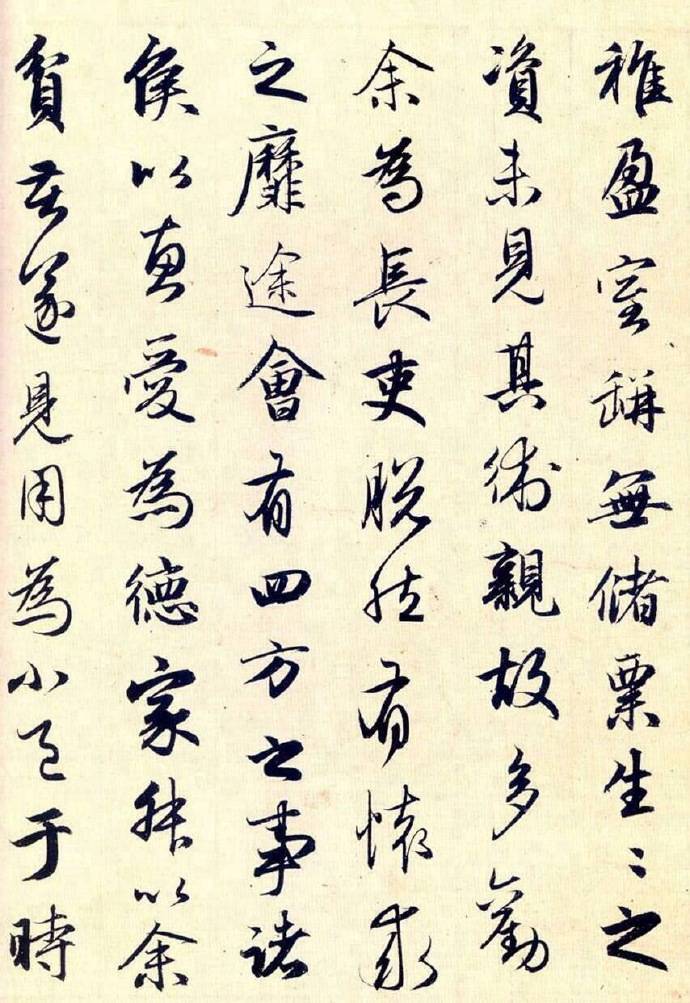 稚盈室缾無儲粟生〻之
資未見其術親故多勸
余為長吏脫然有懷求
之靡途會有四方之事諸
侯以惠愛為德家叔以余
貧苦遂見用為小邑于時